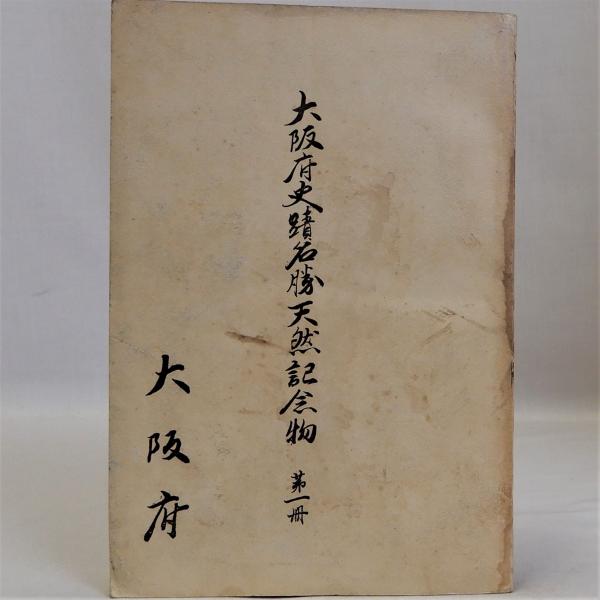 大阪府史蹟名勝天然記念物 第一冊
大阪府